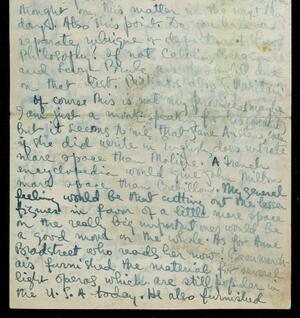 thought on this matter in the next few
days. Also this point. Do you
separate rubrique or department for
Philosophy? If not
and
on that list.
Of course this is not my province maybe
I am just a
but it seems to me that Jane Austen even
if she did write in English does not rate
more space than Molière. A French
encyclopedia would give John Milton
more space than Crébillon. My general
feeling would be that cutting out the lesser
figures in favor of a little more space
on the really big important ones would be
a good move on the whole. As for Anne
Bradstreet who reads her now? Beaumarch-
ais furnished the material for several
light operas which are still popular in
the U.S.A today. He also furnished